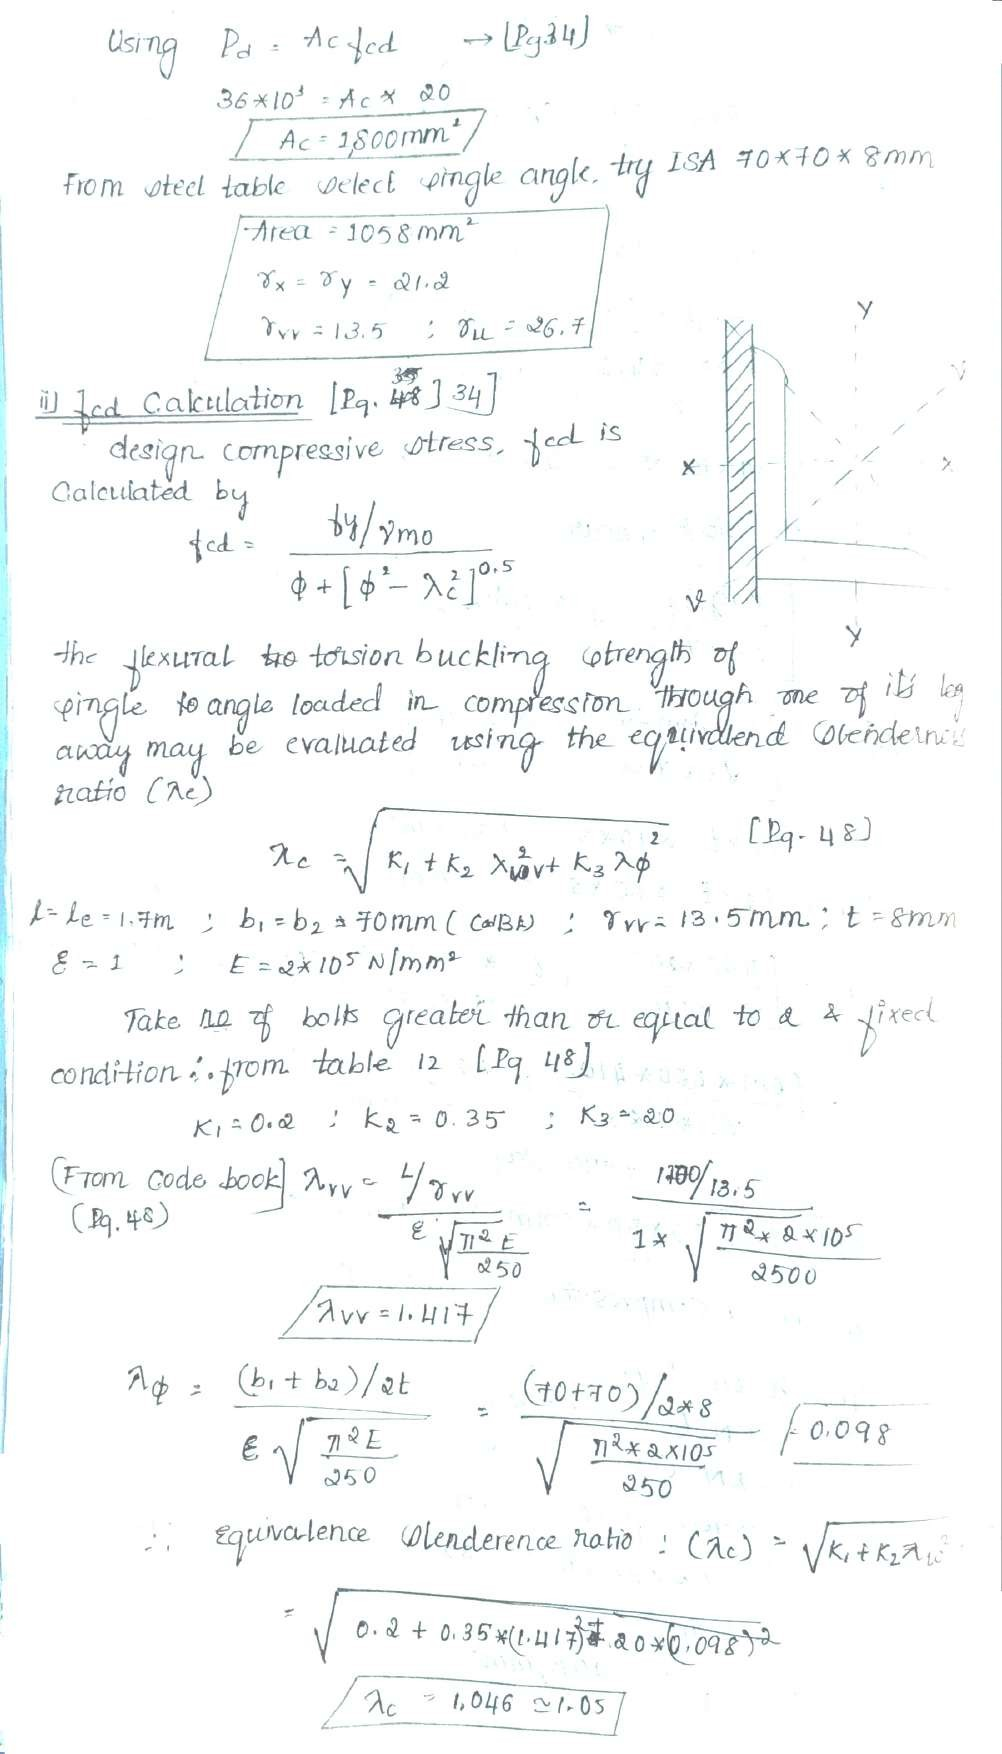 Using Pd = Ac fcd → [Pg 34]
36*10³ = Ac * 20
Ac = 1,800mm²
From steel table select single angle. try ISA 70*70*8mm
Area = 1058mm²
γx = γy = 21.2
γvv = 13.5 ; γu = 26.7
ii) fcd Calculation [Pg. 34]
design compressive stress, fcd is
Calculated by
fcd = fy/γmo / φ + [φ² - λc²]^0.5
Y
V
X
X
V
Y
the flexural torsion buckling strength of
single angle loaded in compression through one of it's leg
away may be evaluated using the equivalend slenderness
ratio (λe)
λc = √K1 + K2 λ²vv + K3 λφ² [Pg. 48]
l = le = 1.7m ; b1 = b2 = 70mm ; γvv = 13.5mm ; t = 8mm
ε = 1 ; E = 2*10⁵ N/mm²
Take no of bolts greater than or equal to 2 & fixed
condition ∴ from table 12 [Pg 48]
K1 = 0.2 ; K2 = 0.35 ; K3 = 20
[From code book] λvv = L/γvv / ε √π²E/250 = 1700/13.5 / 1* √π²*2*10⁵/2500
(Pg. 48)
λvv = 1.417
λφ = (b1 + b2)/2t / ε √π²E/250 = (70+70)/2*8 / √π²*2*10⁵/250 = 0.098
∴ equivalence slenderence ratio : (λc) = √K1 + K2 λ
= √0.2 + 0.35*(1.417)² + 20*(0.098)²
λc = 1.046 ≃ 1.05